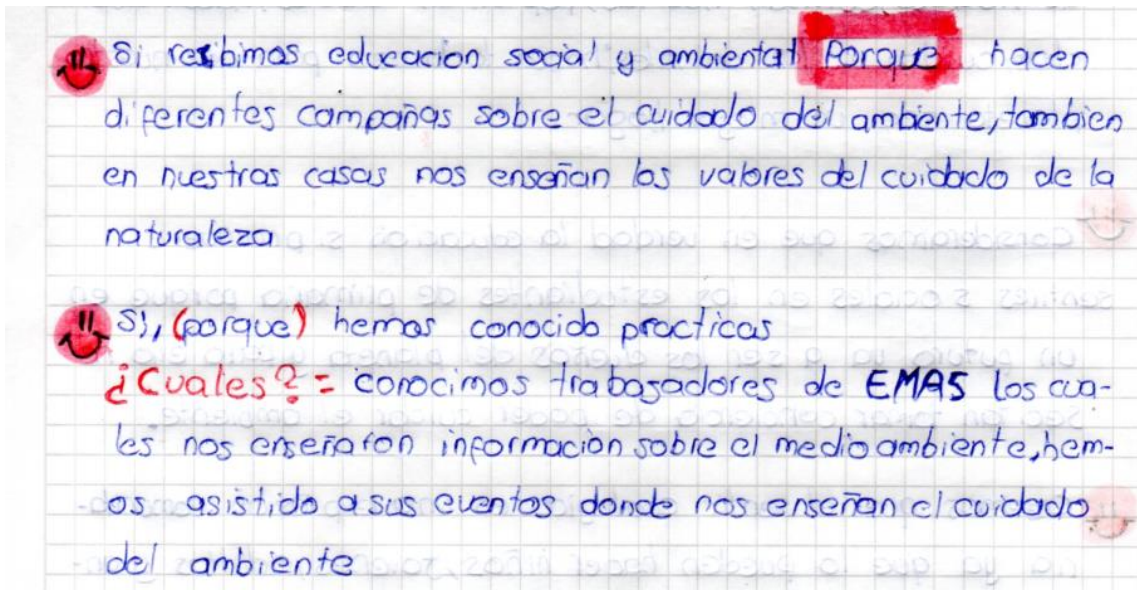 Si recibimos educacion social y ambiental Porque hacen
diferentes campañas sobre el cuidado del ambiente, tambien
en nuestras casas nos enseñan los valores del cuidado de la
naturaleza
Si, (porque) hemos conocido practicas
¿Cuales? = conocimos trabajadores de EMAS los cua-
les nos enseñaron informacion sobre el medio ambiente, hem-
os asistido a sus eventos donde nos enseñan el cuidado
del ambiente